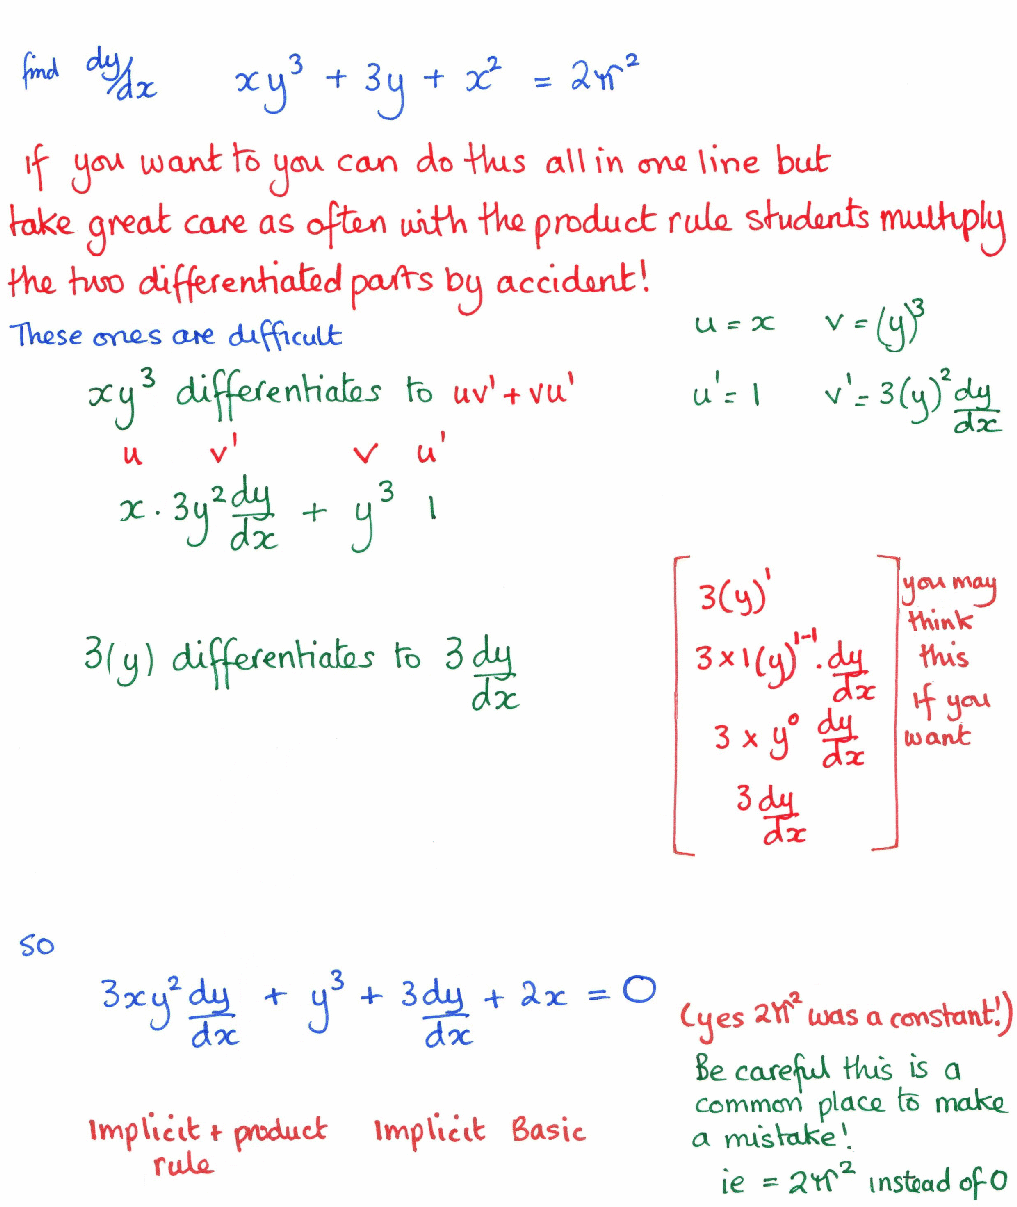 find dy/dx xy³ + 3y + x² = 2π²
If you want to you can do this all in one line but
take great care as often with the product rule students multiply
the two differentiated parts by accident!
These ones are difficult
u = x v = (y)³
xy³ differentiates to uv' + vu'
u' = 1 v' = 3(y)² dy/dx
u v' v u'
x . 3y² dy/dx + y³ 1
3(y) differentiates to 3 dy/dx
3(y)¹
3 × 1(y)¹⁻¹ . dy/dx
3 × y⁰ dy/dx
3 dy/dx
you may
think
this
if you
want
so
3xy² dy/dx + y³ + 3 dy/dx + 2x = 0
(yes 2π² was a constant!)
Be careful this is a
common place to make
a mistake!
ie = 2π² instead of 0
Implicit + product
rule
Implicit
Basic